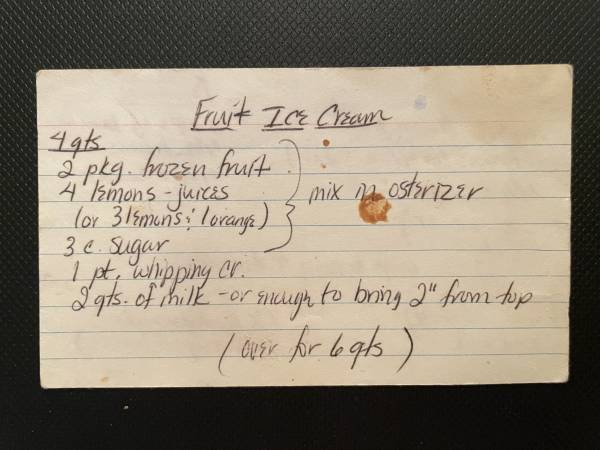 Fruit Ice Cream
4 qts
2 pkg. frozen fruit
4 lemons - juices
(or 3 lemons & 1 orange)
mix in osterizer
3 c. sugar
1 pt. whipping cr.
2 qts. of milk - or enough to bring 2" from top
(over for 6 qts)